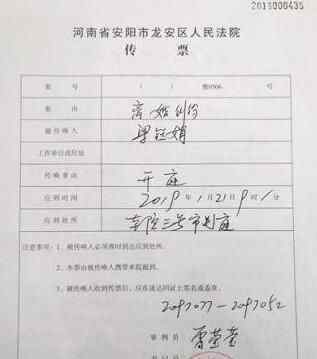 2018000435
河南省安阳市龙安区人民法院
传 票
案 号 （ ） 豫0506
案 由 离婚纠纷
被传唤人
工作单位或住址
传唤事由 开庭
应到时间 2019年1月21日9时
应到处所 本院三号审判庭
注意事项：1、被传唤人必须准时到达应到处所。
2、本票由被传唤人携带来院报到。
3、被传唤人收到传票后，应在送达回证上签名或盖章。
审 判 员